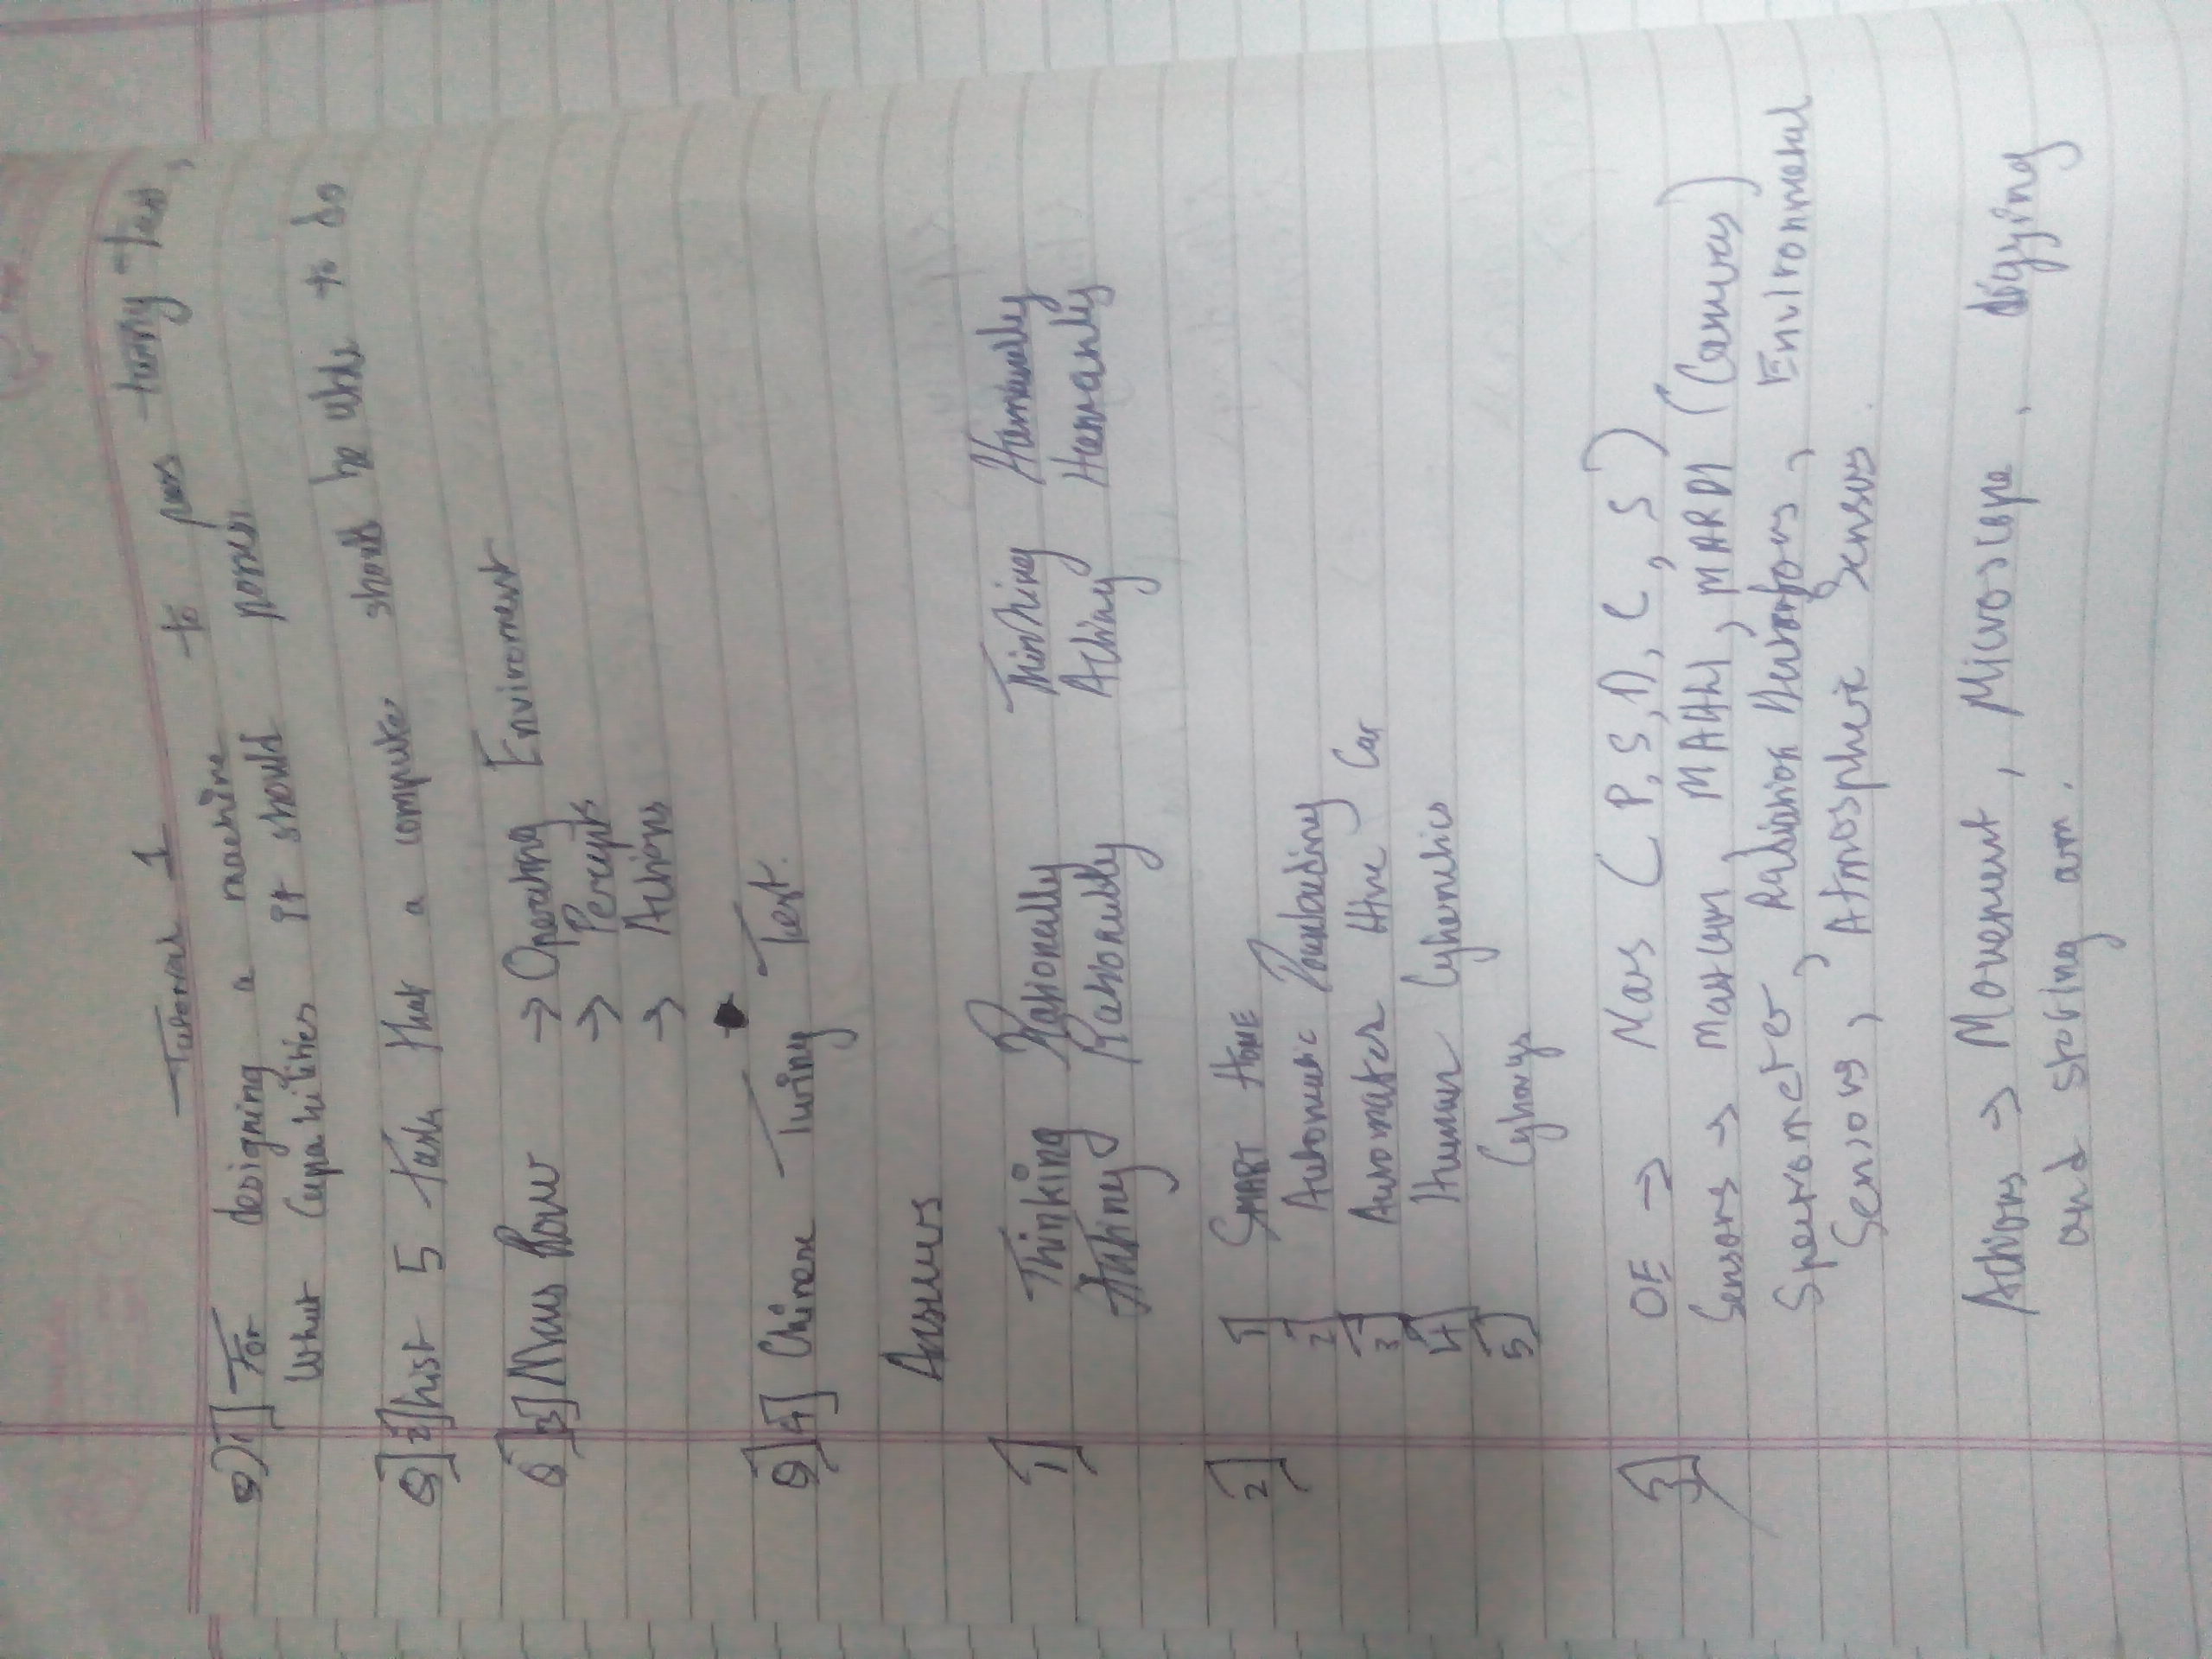 Tutorial 1
Q)1] For designing a machine to pass turing test,
What Capabilities it should posses
Q]2] List 5 Task that a computer should be able to do
Q]3] Mars Rover → Operating Enviroment
→ Percepts
→ Actions
Q]4] Chinese Turing Test.
Answers
1] Thinking Rationally Thinking Humanly
Acting Rationally Acting Humanly
2] 1] SMART HOME
2] Automatic
3] Automated Car
4] Human Cybernetics
5] Cyborgs
3] OE → Mars (P, S, D, C, S)
Sensors → Mastcam MAHLI, MARDI (Cameras)
Spectrometer, Radiation Detectors, Environmental
Sensors, Atmospheric Sensors.
Actions → Movement, Microscope, digging
and storing arm.